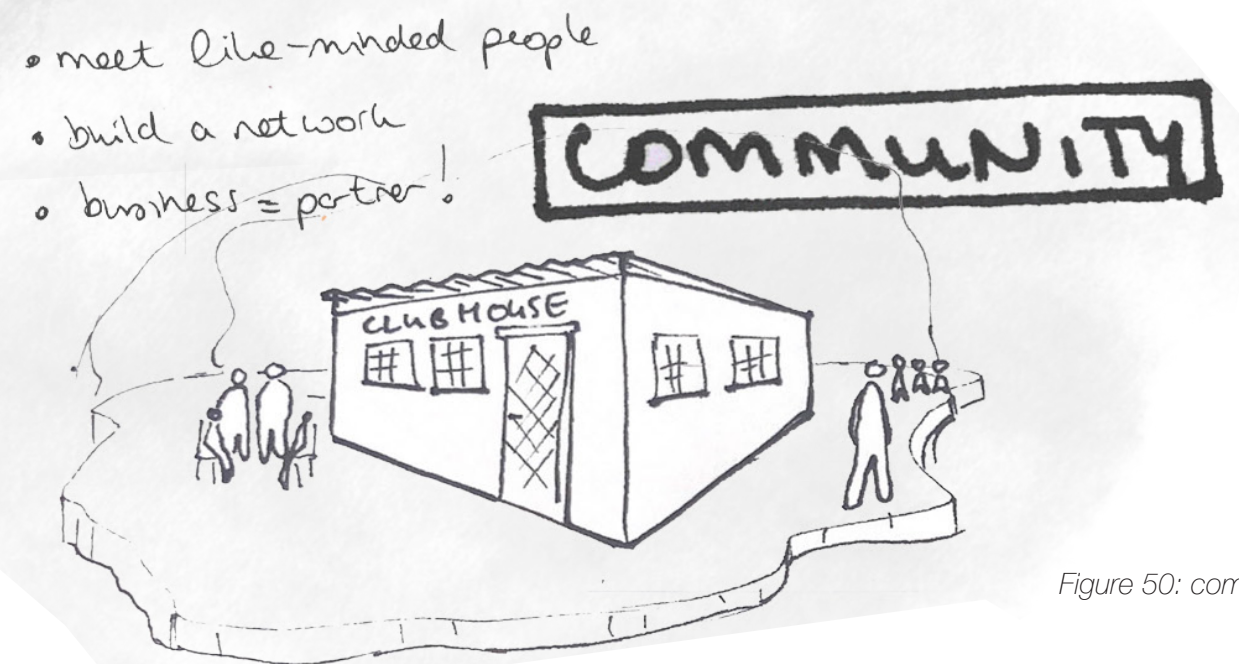 • meet like-minded people
• build a network
• business = partner!
COMMUNITY
CLUBHOUSE
Figure 50: com